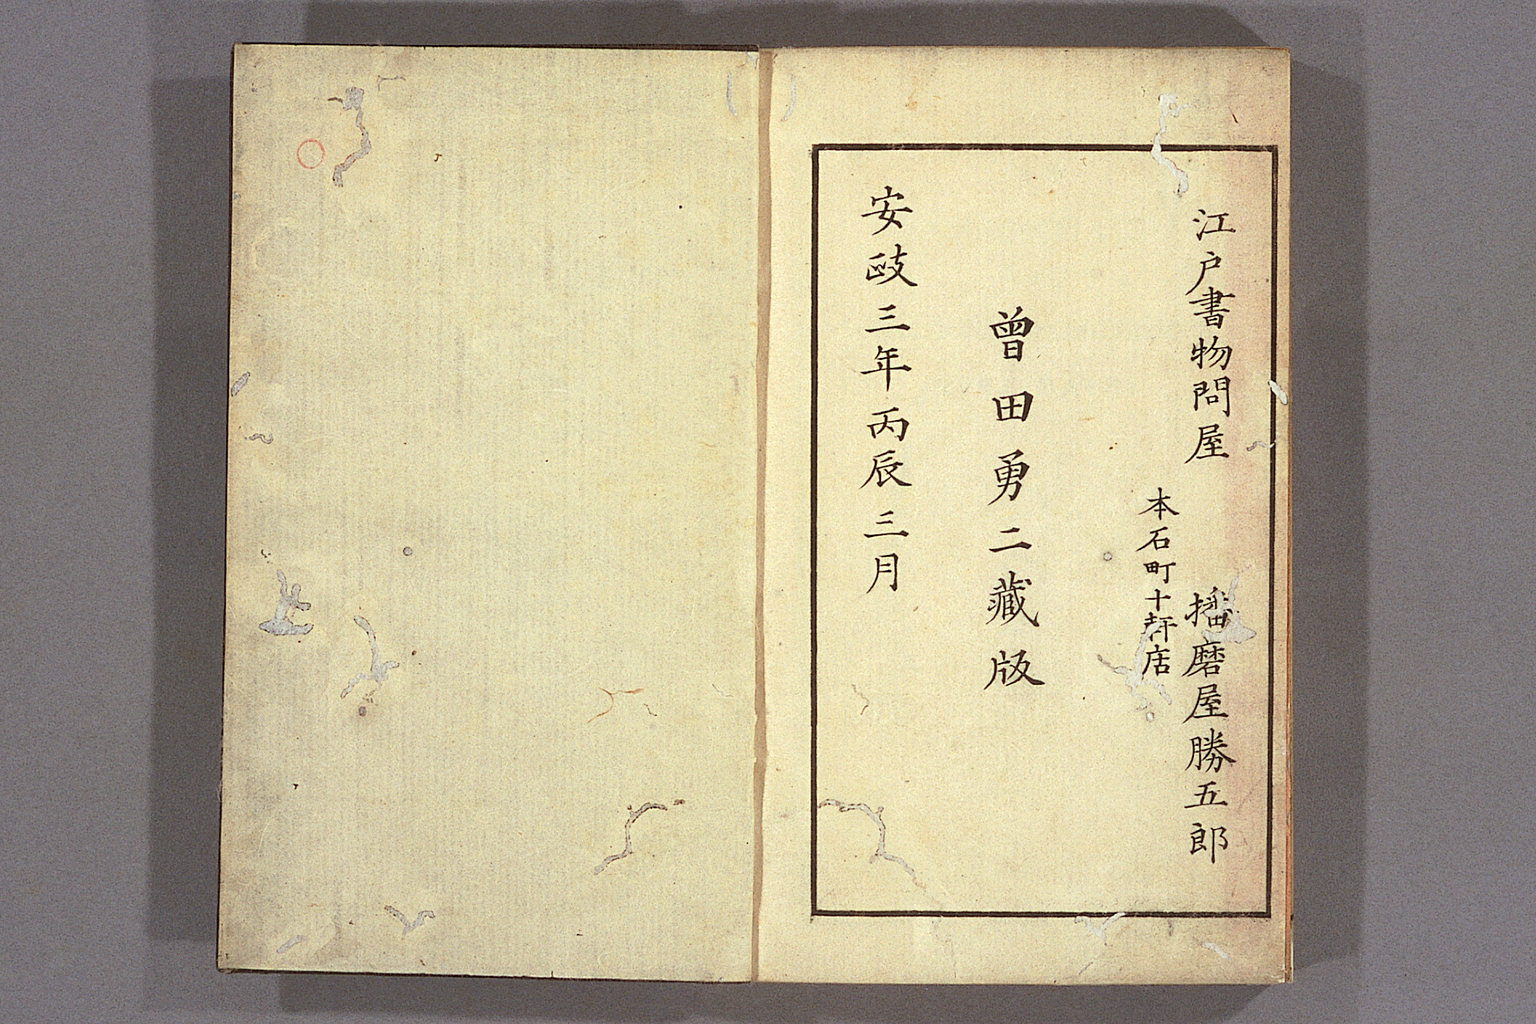 江戸書物問屋
本石町十軒店
播磨屋勝五郎
曾田勇二藏版
安政三年丙辰三月